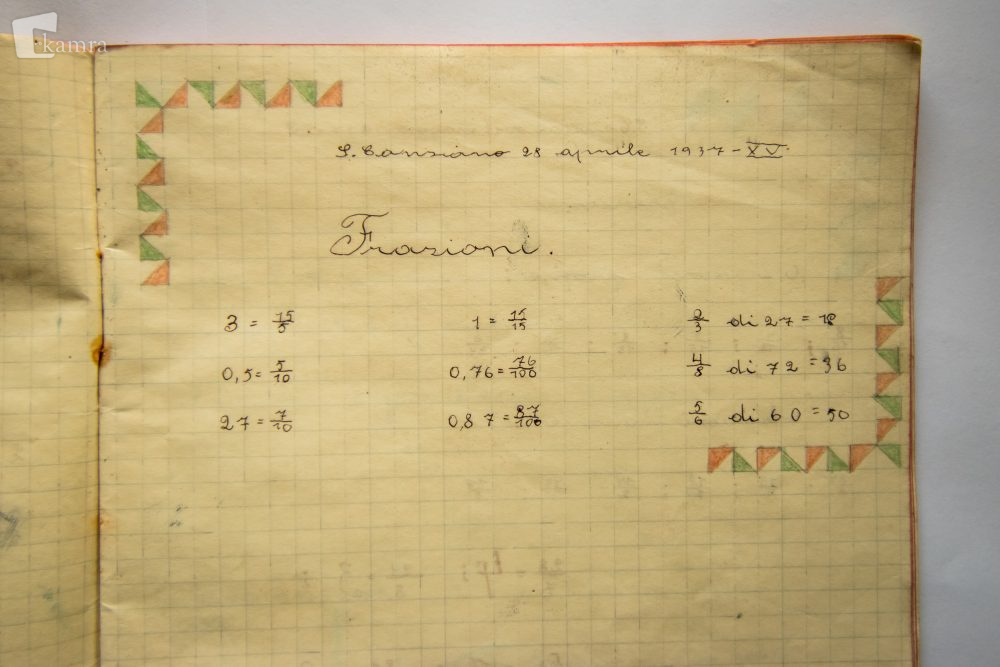 kamra
S. Canziano 28 aprile 1937-XV.
Frazioni.
3 = 15/5 1 = 15/15 2/3 di 27 = 18
0,5 = 5/10 0,76 = 76/100 4/8 di 72 = 36
27 = 7/10 0,87 = 87/100 5/6 di 60 = 50